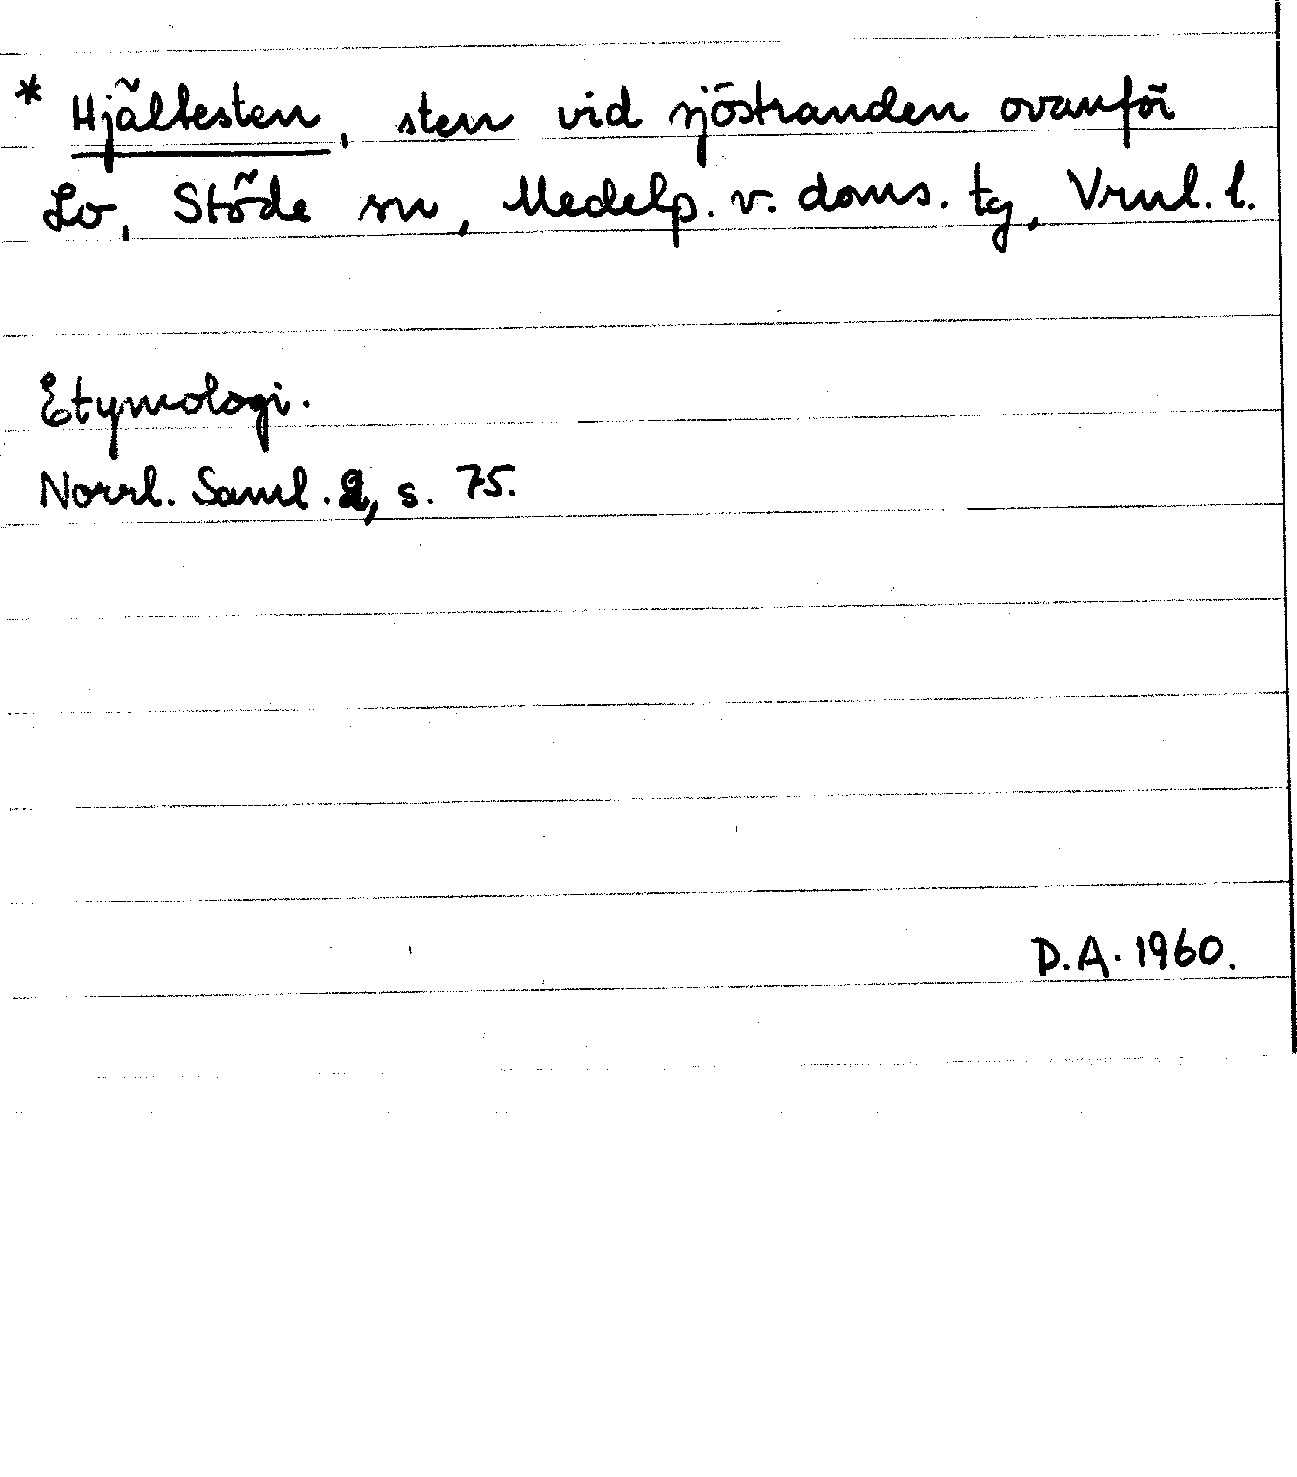 * Hjältesten, sten vid sjöstranden ovanför
Lo, Stöde sn, Medelp. v. doms. tg, Vrnl. l.
Etymologi.
Norrl. Saml. 2, s. 75.
D.A. 1960.